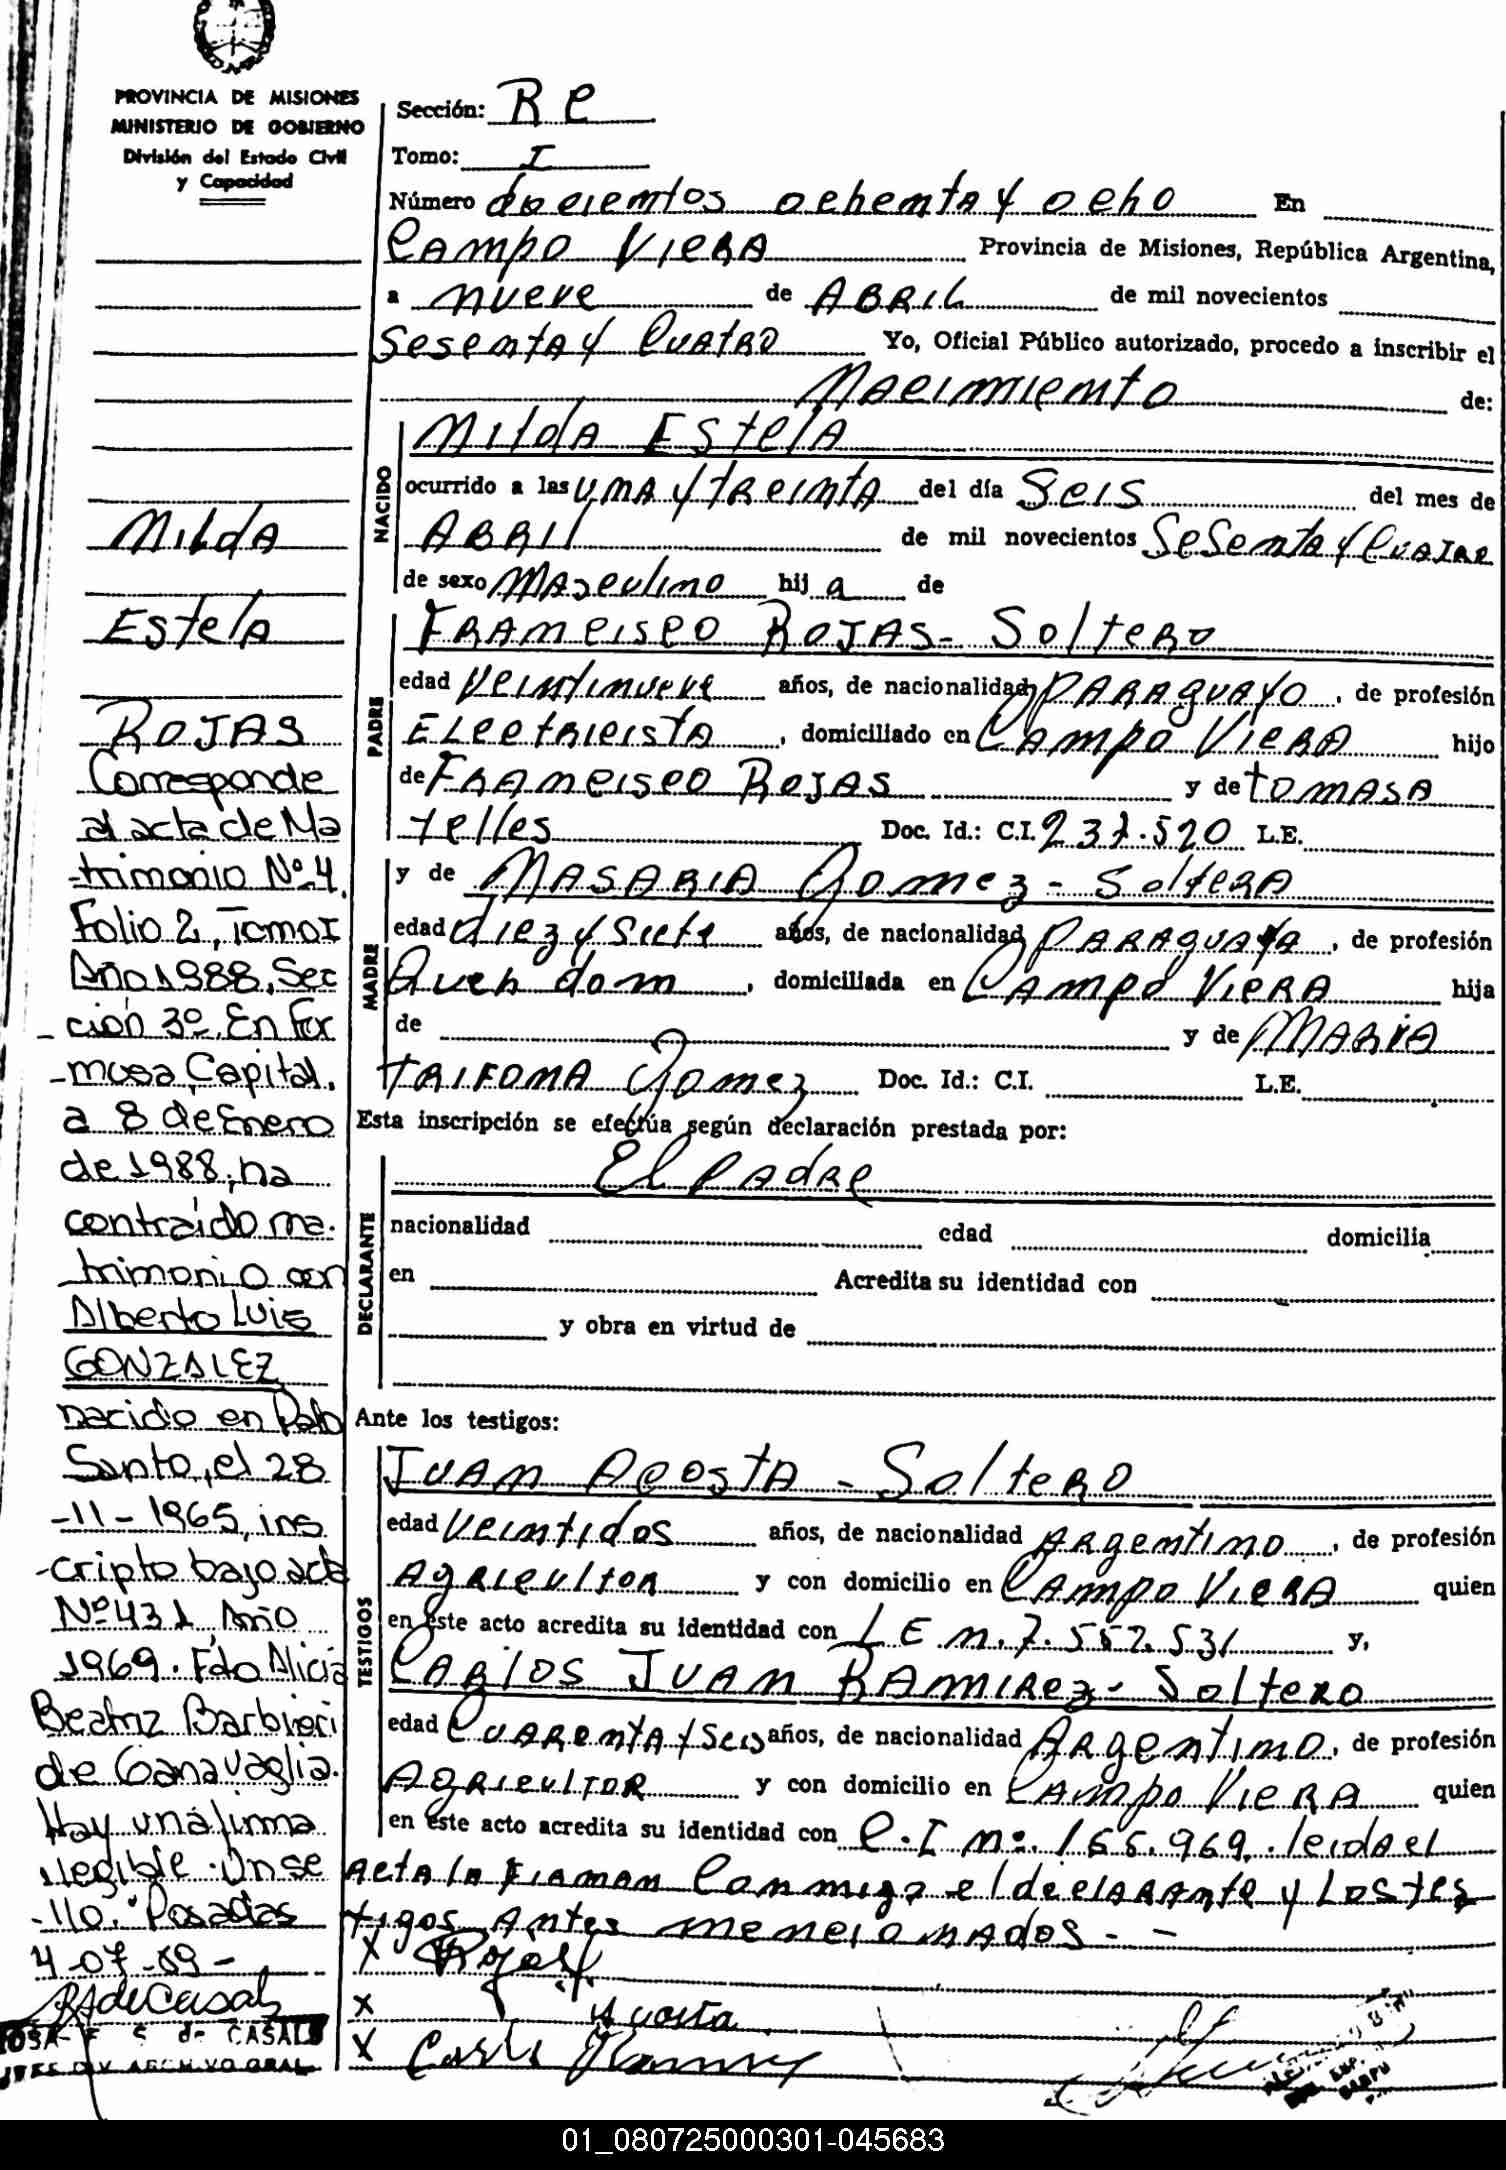 PROVINCIA DE MISIONES
MINISTERIO DE GOBIERNO
División del Estado Civil
y Capacidad
Milda
Estela
ROJAS
Corresponde
al acta de Ma
-trimonio Nº 4,
Folio 2, Tomo I
Año 1988, Sec
- ción 3º. En For
-mosa, Capital,
a 8 de Enero
de 1988, ha
contraído ma-
trimonio con
Alberto Luis
GONZALEZ
nacido en Palo
Santo, el 28
-11-1965, ins
-cripto bajo acta
Nº 431 Año
1969. Fdo Alicia
Beatriz Barbieri
de Ganavaglia.
Hay una firma
ilegible. Un se
-llo. Posadas
4-07-89-
RS de Casals
CASALS
Sección: RC
Tomo: I
Número docientos ochenta y ocho En
Campo Viera Provincia de Misiones, República Argentina,
a nueve de ABRIL de mil novecientos
Sesenta y Cuatro Yo, Oficial Público autorizado, procedo a inscribir el
Nacimiento de:
NACIDO
Milda Estela
ocurrido a las una y treinta del día Seis del mes de
ABRIL de mil novecientos Sesenta y Cuatro
de sexo Masculino hij a de
PADRE
Francisco Rojas - Soltero
edad Veintinueve años, de nacionalidad Paraguayo, de profesión
Electricista, domiciliado en Campo Viera hijo
de Francisco Rojas y de tomasa
telles Doc. Id.: C.I. 231.520 L.E.
MADRE
y de Nasaria Gomez - Soltera
edad diez y Siete años, de nacionalidad Paraguaya, de profesión
Queh dom, domiciliada en Campo Viera hija
de y de Maria
trifona Gomez Doc. Id.: C.I. L.E.
Esta inscripción se efectúa según declaración prestada por:
DECLARANTE
El Padre
nacionalidad edad domicilia
en Acredita su identidad con
y obra en virtud de
Ante los testigos:
TESTIGOS
Juan Acosta - Soltero
edad Veintidos años, de nacionalidad Argentino, de profesión
Agricultor y con domicilio en Campo Viera quien
en este acto acredita su identidad con L E n. 7.557.531 y,
Carlos Juan Ramirez - Soltero
edad Cuarenta y Seis años, de nacionalidad Argentino, de profesión
Agricultor y con domicilio en Campo Viera quien
en este acto acredita su identidad con C.I nº. 155.969. leida el
Acta la Firman Conmigo el declarante y Los tes
tigos Antes mencionados. -
X Rojas
X Acosta
X Carlos Ramirez
01_080725000301-045683